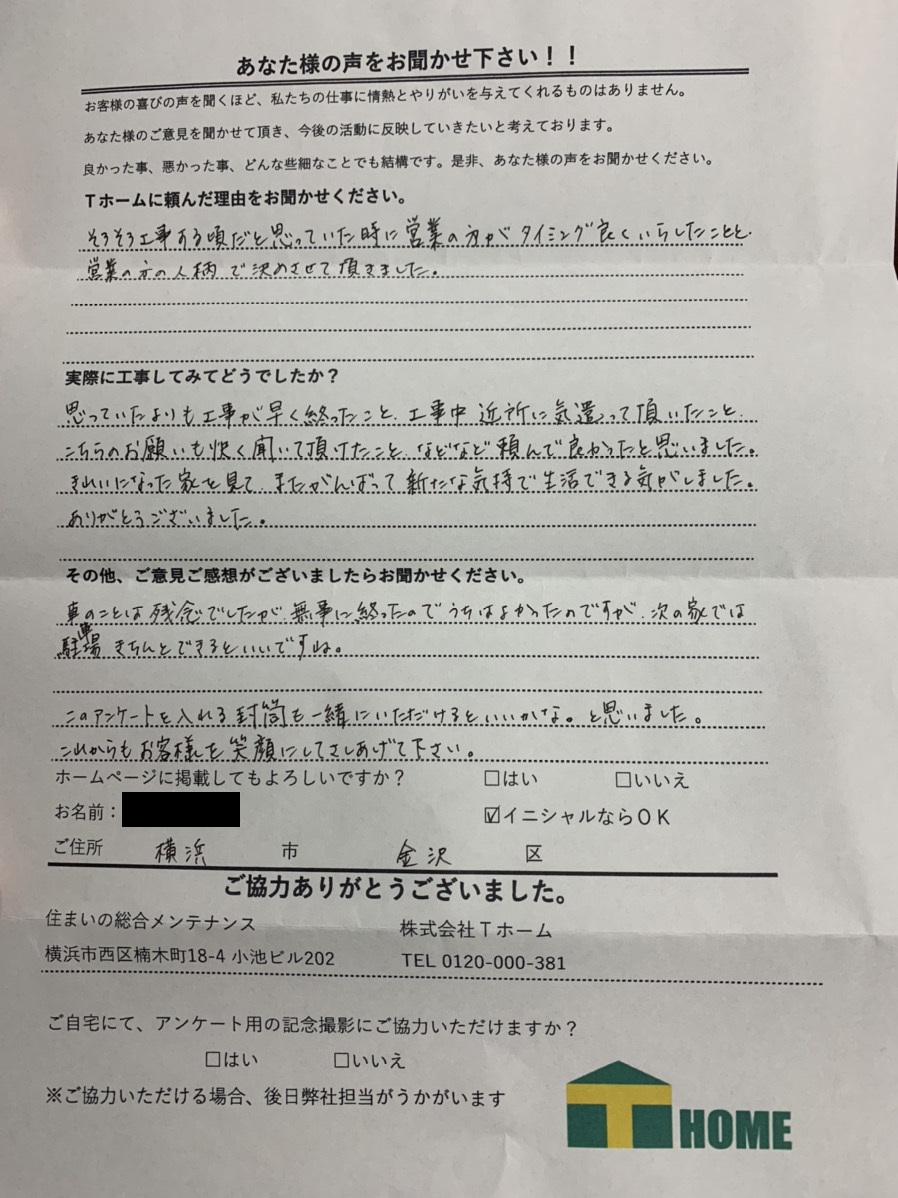 あなた様の声をお聞かせ下さい！！
お客様の喜びの声を聞くほど、私たちの仕事に情熱とやりがいを与えてくれるものはありません。
あなた様のご意見を聞かせて頂き、今後の活動に反映していきたいと考えております。
良かった事、悪かった事、どんな些細なことでも結構です。是非、あなた様の声をお聞かせください。
Tホームに頼んだ理由をお聞かせください。
そろそろ工事する頃だと思っていた時に営業の方がタイミング良くいらしたことと、
営業の方の人柄で決めさせて頂きました。
実際に工事してみてどうでしたか？
思っていたよりも工事が早く終ったこと、工事中近所に気遣って頂いたこと、
こちらのお願いも快く聞いて頂けたこと、などなど頼んで良かったと思いました。
きれいになった家を見て、またがんばって新たな気持で生活できる気がしました。
ありがとうございました。
その他、ご意見ご感想がございましたらお聞かせください。
車のことは残念でしたが、無事に終ったのでうちはよかったのですが、次の家では
駐車場きちんとできるといいですね。
このアンケートを入れる封筒も一緒にいただけるといいかな。と思いました。
これからもお客様を笑顔にしてさしあげて下さい。
ホームページに掲載してもよろしいですか？ □はい □いいえ
お名前： ☑イニシャルならOK
ご住所 横浜 市 金沢 区
ご協力ありがとうございました。
住まいの総合メンテナンス 株式会社Tホーム
横浜市西区楠木町18-4 小池ビル202 TEL 0120-000-381
ご自宅にて、アンケート用の記念撮影にご協力いただけますか？
□はい □いいえ
※ご協力いただける場合、後日弊社担当がうかがいます
T HOME